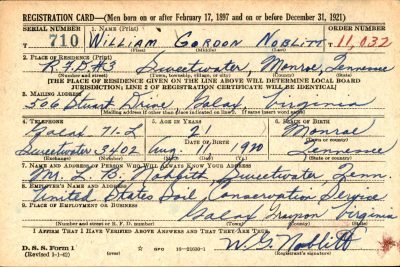 REGISTRATION CARD—(Men born on or after February 17, 1897 and on or before December 31, 1921)
SERIAL NUMBER 1. NAME (Print) ORDER NUMBER
T 710 WILLIAM GORDON NOBLITT T11,032
(First) (Middle) (Last)
2. PLACE OF RESIDENCE (Print)
R.F.D #3 Sweetwater, Monroe, Tennessee
(Number and street) (Town, township, village, or city) (County) (State)
[THE PLACE OF RESIDENCE GIVEN ON THE LINE ABOVE WILL DETERMINE LOCAL BOARD
JURISDICTION; LINE 2 OF REGISTRATION CERTIFICATE WILL BE IDENTICAL]
3. MAILING ADDRESS
506 Stuart Drive, Galax, Virginia
[Mailing address if other than place indicated on line 2. If same insert word same]
4. TELEPHONE 5. AGE IN YEARS 6. PLACE OF BIRTH
Galax 71-L 21 Monroe
DATE OF BIRTH (Town or county)
Sweetwater 3402 Aug. 11 1920 Tennessee
(Exchange) (Number) (Mo.) (Day) (Yr.) (State or country)
7. NAME AND ADDRESS OF PERSON WHO WILL ALWAYS KNOW YOUR ADDRESS
Mr. L. B. Noblitt Sweetwater Tenn.
8. EMPLOYER'S NAME AND ADDRESS
United States Soil Conservation Service
9. PLACE OF EMPLOYMENT OR BUSINESS
Galax Grayson Virginia
(Number and street or R. F. D. number) (Town) (County) (State)
I AFFIRM THAT I HAVE VERIFIED ABOVE ANSWERS AND THAT THEY ARE TRUE.
D. S. S. Form 1 GPO 16—21630-1 W. G. Noblitt
(Revised 1-1-42) (Registrant's signature)